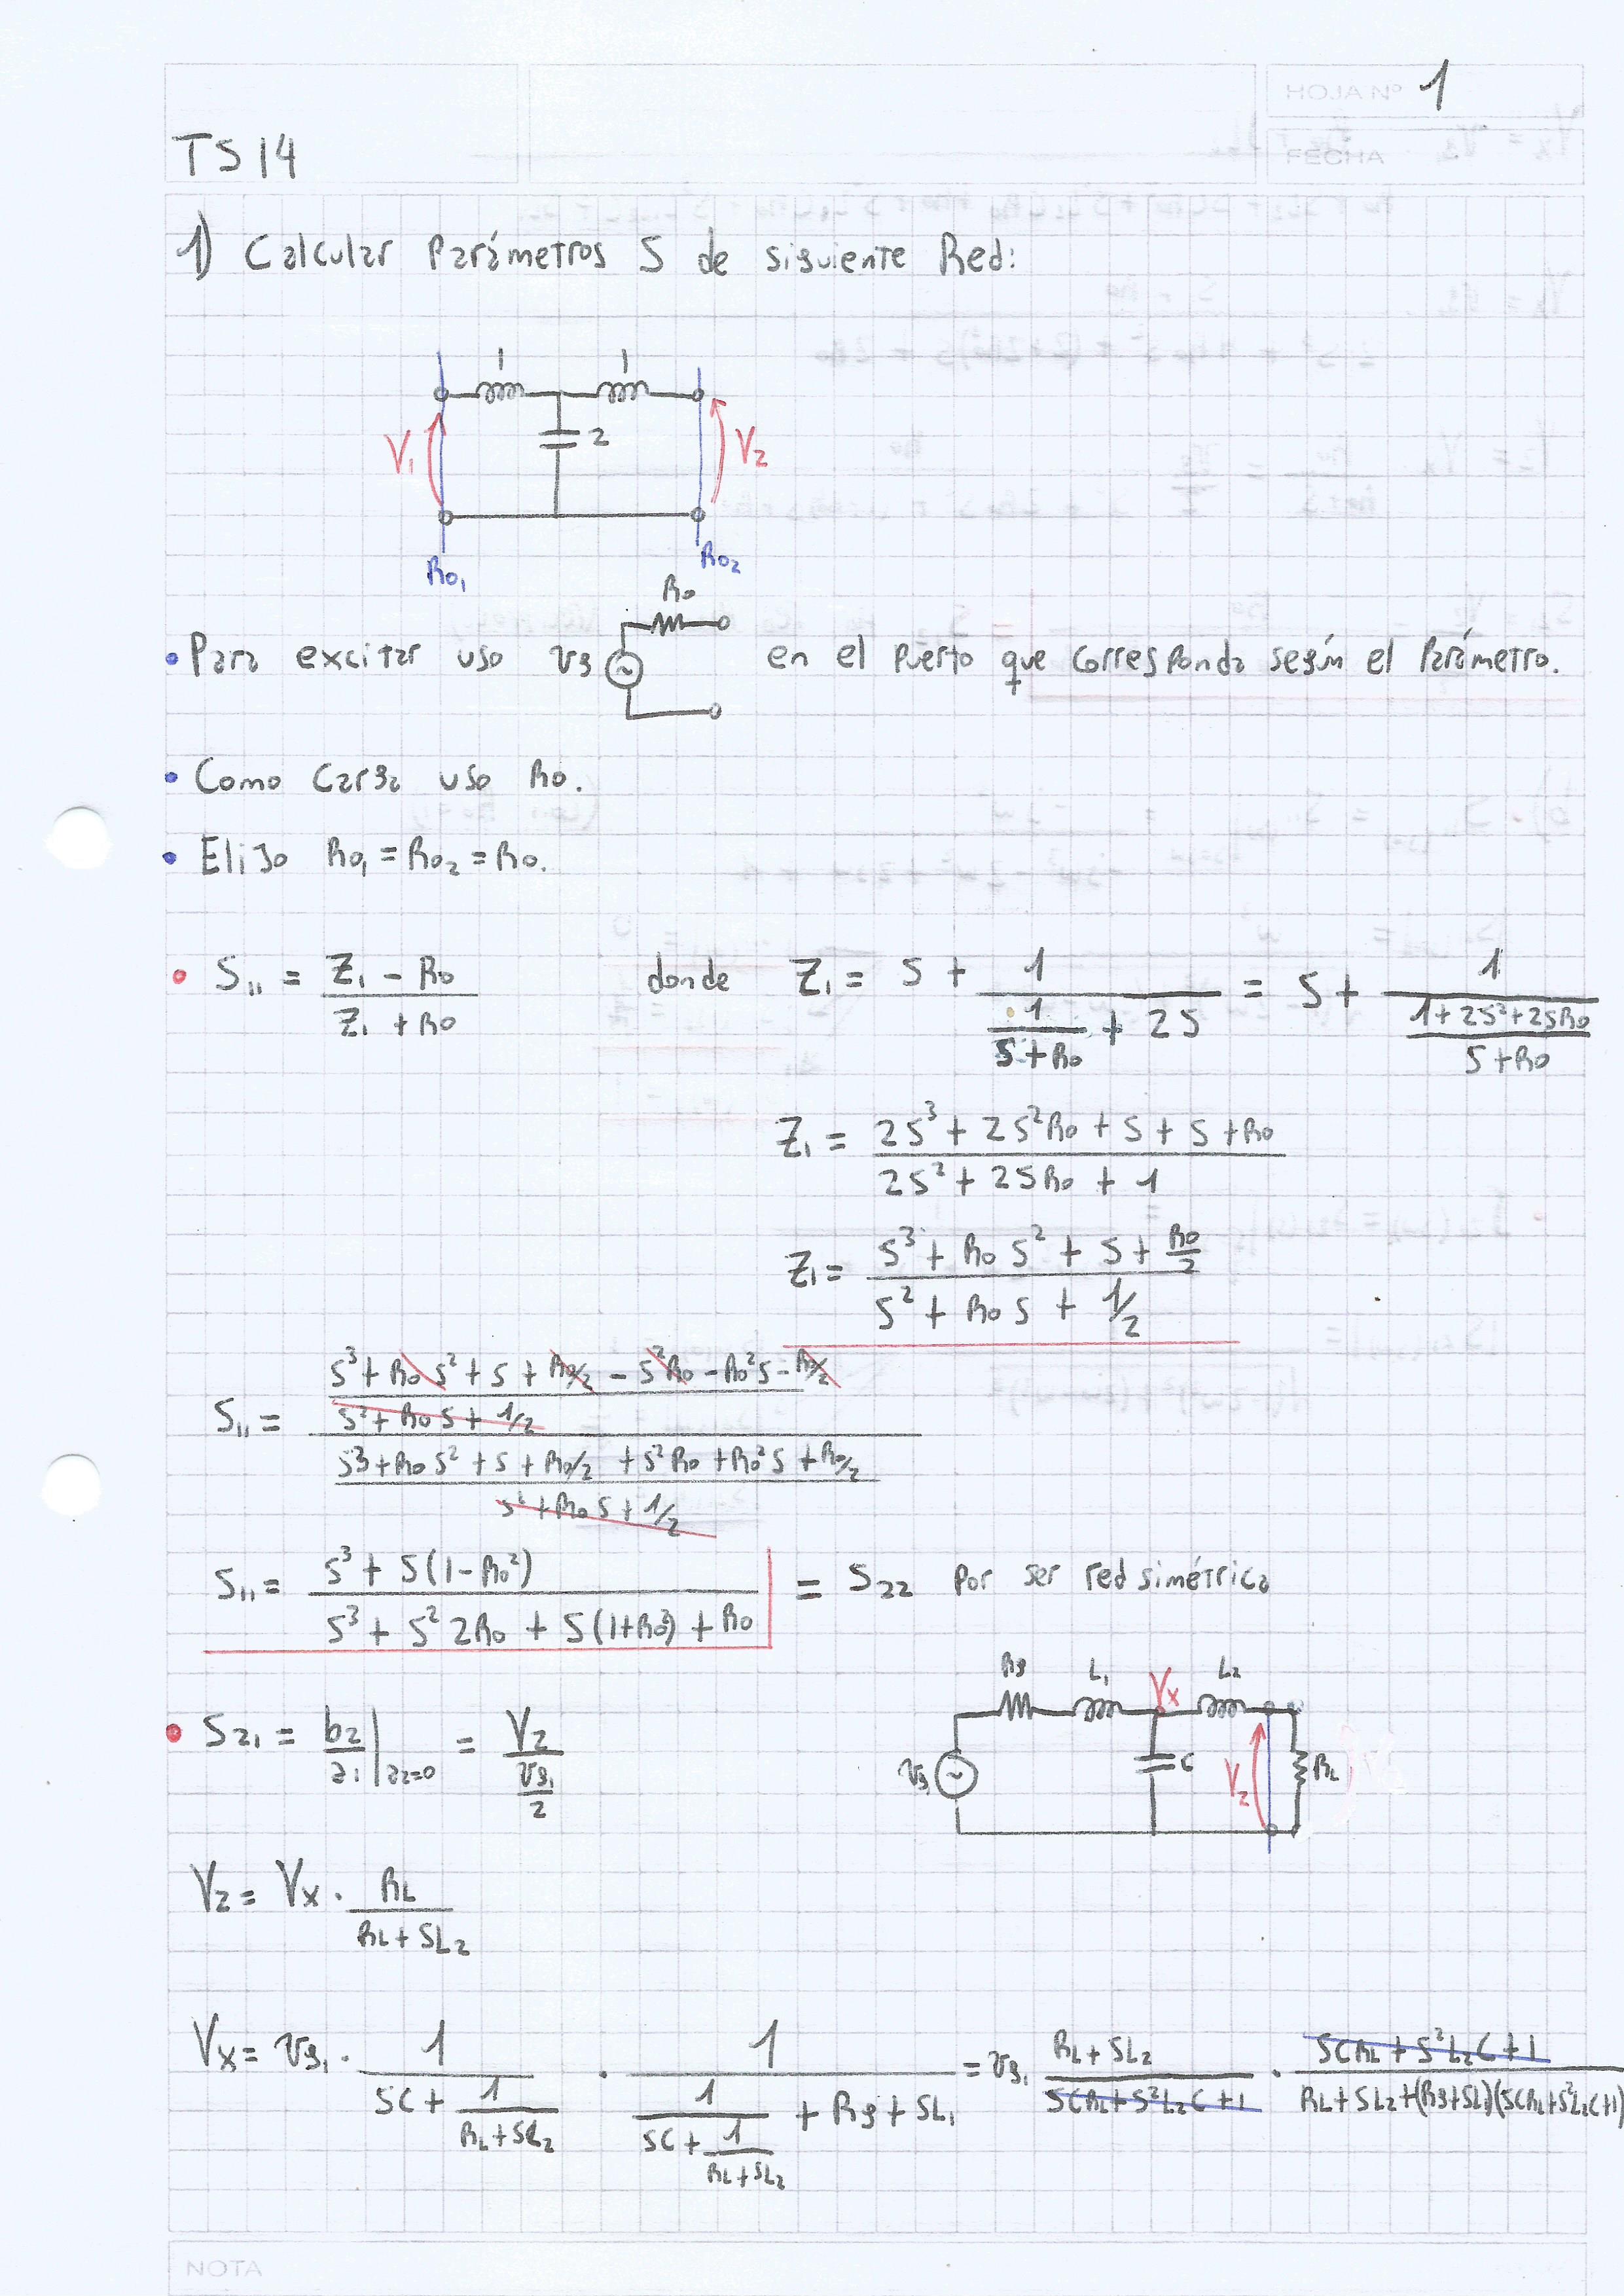 HOJA Nº 1
FECHA
TS14
1) Calcular Parámetros S de siguiente Red:
1 1
2
V₁ V₂
R₀₁ R₀₂
R₀
• Para excitar uso vg en el puerto que corresponda según el Parámetro.
• Como carga uso R₀.
• Elijo R₀₁ = R₀₂ = R₀.
• S₁₁ = (Z₁ - R₀)/(Z₁ + R₀) donde Z₁ = S + 1/(1/(S+R₀) + 2S) = S + 1/((1+2S²+2SR₀)/(S+R₀))
Z₁ = (2S³ + 2S²R₀ + S + S + R₀)/(2S² + 2SR₀ + 1)
Z₁ = (S³ + R₀S² + S + R₀/2)/(S² + R₀S + 1/2)
S₁₁ = ((S³ + R₀S² + S + R₀/2 - S²R₀ - R₀²S - R₀/2)/(S² + R₀S + 1/2))/((S³ + R₀S² + S + R₀/2 + S²R₀ + R₀²S + R₀/2)/(S² + R₀S + 1/2))
S₁₁ = (S³ + S(1-R₀²))/(S³ + S²2R₀ + S(1+R₀²) + R₀) = S₂₂ por ser red simétrica
Rg L₁ Vx L₂
vg C V₂ RL
• S₂₁ = b₂/a₁|a₂=0 = V₂/(vg₁/2)
V₂ = Vx · RL/(RL + SL₂)
Vx = vg₁ · 1/(SC + 1/(RL+SL₂)) · 1/(1/(SC + 1/(RL+SL₂)) + Rg + SL₁) = vg₁ (RL + SL₂)/(SCRL + S²L₂C + 1) · (SCRL + S²L₂C + 1)/(RL + SL₂ + (Rg+SL₁)(SCRL+S²L₂C+1))
NOTA